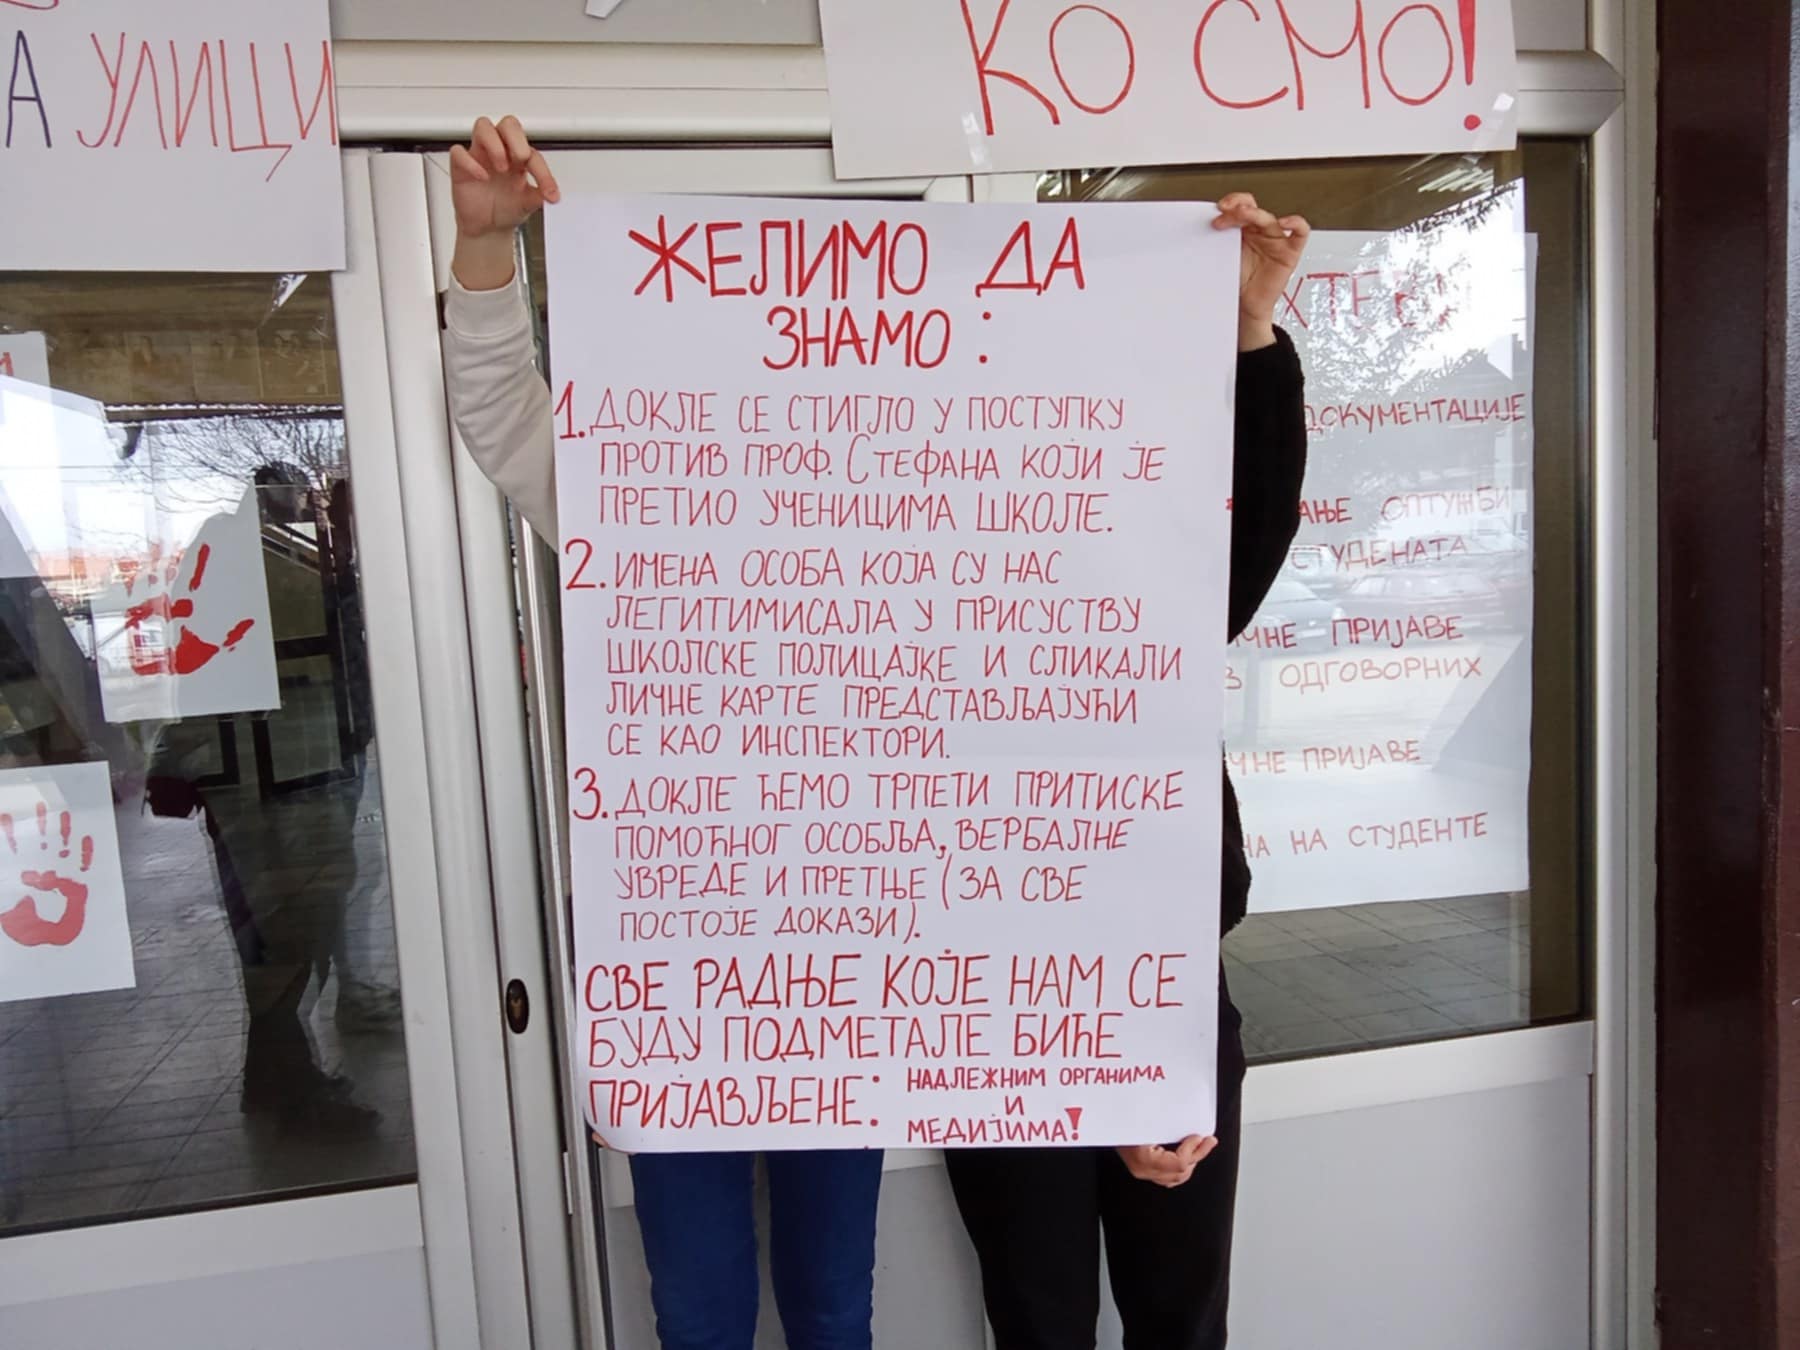 А УЛИЦИ
КО СМО!
ЖЕЛИМО ДА
ЗНАМО:
1. ДОКЛЕ СЕ СТИГЛО У ПОСТУПКУ
ПРОТИВ ПРОФ. СТЕФАНА КОЈИ ЈЕ
ПРЕТИО УЧЕНИЦИМА ШКОЛЕ.
2. ИМЕНА ОСОБА КОЈА СУ НАС
ЛЕГИТИМИСАЛА У ПРИСУСТВУ
ШКОЛСКЕ ПОЛИЦАЈКЕ И СЛИКАЛИ
ЛИЧНЕ КАРТЕ ПРЕДСТАВЉАЈУЋИ
СЕ КАО ИНСПЕКТОРИ.
3. ДОКЛЕ ЋЕМО ТРПЕТИ ПРИТИСКЕ
ПОМОЋНОГ ОСОБЉА, ВЕРБАЛНЕ
УВРЕДЕ И ПРЕТЊЕ (ЗА СВЕ
ПОСТОЈЕ ДОКАЗИ).
СВЕ РАДЊЕ КОЈЕ НАМ СЕ
БУДУ ПОДМЕТАЛЕ БИЋЕ
ПРИЈАВЉЕНЕ: НАДЛЕЖНИМ ОРГАНИМА
И
МЕДИЈИМА!
ХТЕВИ
ДОКУМЕНТАЦИЈЕ
АЊЕ ОПТУЖБИ
СТУДЕНАТА
ИЧНЕ ПРИЈАВЕ
В ОДГОВОРНИХ
ЧНЕ ПРИЈАВЕ
НА НА СТУДЕНТЕ